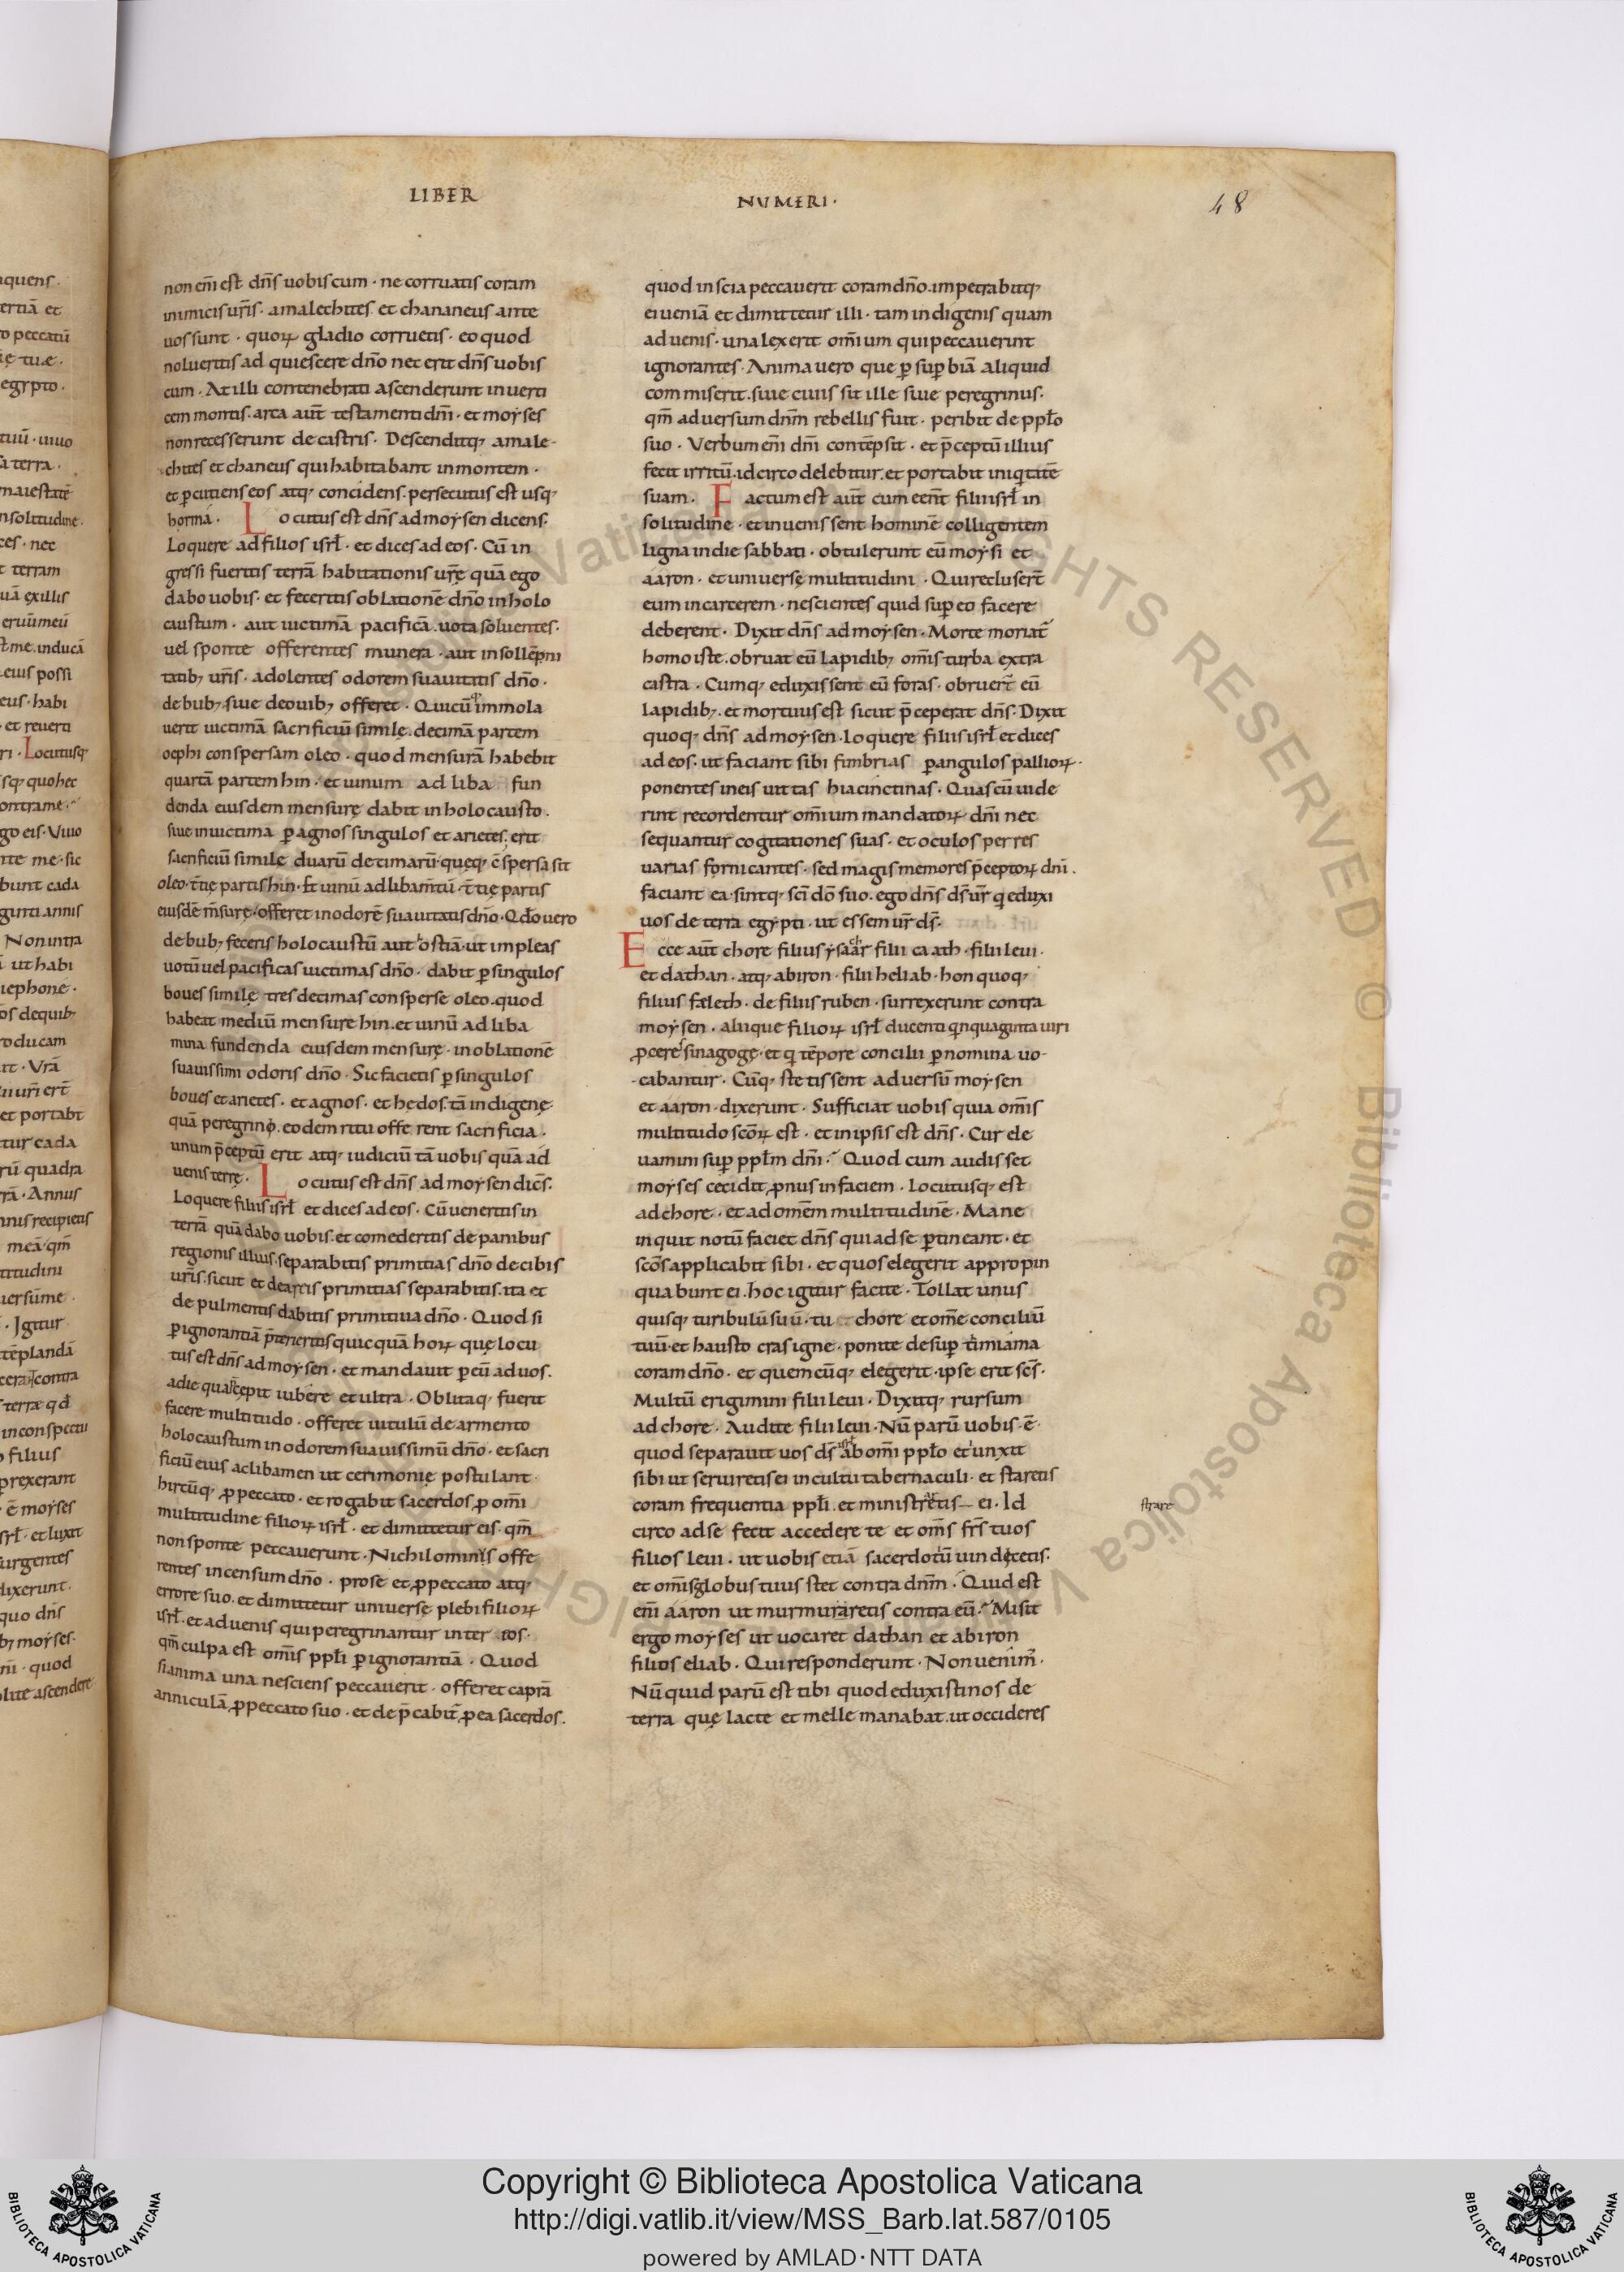 LIBER
NUMERI ·
48
non eni͞ est dn͞s uobis cum · ne corruatis coram
inimicis ur͞is · amalechites et chananeus ante
uos sunt · quoꝝ gladio corruetis · eo quod
nolueritis ad quiescere dn͞o nec erit dn͞s uobis
cum · At illi contenebrati ascenderunt in uerti
cem montis . arca aut͞ testamenti dn͞i · et moyses
non recesserunt de castris · Descenditq; amale-
chites et chaneus qui habitabant in montem ·
et p̲cutiens eos atq; concidens . persecutus est usq;
horma͞ · Locutus est dn͞s ad moysen dicens .
Loquere ad filios isrl̄ · et dices ad eos · Cu͞ in
gressi fueritis terra͞ habitationis ur͞ę qua͞ ego
dabo uobis · et feceritis oblatione͞ dn͞o in holo
caustum · aut uictima͞ pacifica͞ . uota soluentes .
uel sponte offerentes munera · aut in solle͞pni
tatib; ur͞is · adolentes odorem suauitatis dn͞o ·
de bub; siue de ouib; offeret · Quicu͞q; immola
uerit uictima͞ sacrificiu͞ simile . decima͞ partem
oephi conspersam oleo · quod mensura͞ habebit
quarta͞ partem hin · et uinum ad liba fun
denda eiusdem mensurę dabit in holocausto .
siue in uictima p̲ agnos singulos et arietes . erit
sacrificiu͞ simile duaru͞ decimaru͞ · quęq; c͞spersa sit
oleo · t͞tię partis hin · Et uinu͞ ad libam͞tu͞ · t͞tię partis
eiusde͞ m͞surę · offeret in odore͞ suauitatis dn͞o · Qd̄o uero
de bub; feceris holocaustu͞ aut ostia͞ · ut impleas
uotu͞ uel pacificas uictimas dn͞o · dabit p̲ singulos
boues similę tres decimas consperse oleo . quod
habeat mediu͞ mensure hin . et uinu͞ ad liba
mina fundenda eiusdem mensurę · in oblatione͞
suauissimi odoris dn͞o · Sic facietis p̲ singulos
boues et arietes · et agnos · et hędos . ta͞ indigenę
qua͞ peregrino . eodem ritu offe rent sacrificia .
unum p͞ceptu͞ erit atq; iudiciu͞ ta͞ uobis qua͞ ad
uenis terrę · Locutus est dn͞s ad moysen dice͞s .
Loquere filiis isrl̄ et dices ad eos · Cu͞ ueneritis in
terra͞ qua͞ dabo uobis . et comederitis de panibus
regionis illius . separabitis primitias dn͞o de cibis
ur͞is . sicut et de areis primitias separabitis . ita et
de pulmentis dabitis primitiua dn͞o · Quod si
p̲ ignorantia͞ p͞terieritis quicqua͞ hoꝝ quę locu
tus est dn͞s ad moysen · et mandauit p̲ eu͞ ad uos .
a die qua cepit iubere et ultra · Oblitaq; fuerit
facere multitudo · offeret uitulu͞ de armento
holocaustum in odorem suauissimu͞ dn͞o · et sacri
ficiu͞ eius ac libamen ut cerimonię postulant ·
hircu͞q; ꝓ peccato · et rogabit sacerdos ꝓ omi͞
multitudine filioꝝ isrl̄ · et dimittetur eis · qm͞
non sponte peccauerunt · Nichilominis offe
rentes incensum dn͞o · pro se et ꝓ peccato atq;
errore suo . et dimittetur uniuersę plebi filioꝝ
isrl̄ · et aduenis qui peregrinantur inter eos ·
qm͞ culpa est om͞is ppl̄i p̲ ignorantia͞ · Quod
si anima una nesciens peccauerit · offeret capra͞
annicula͞ ꝓ peccato suo · et dep͞cabit͞ ꝓ ea sacerdos .
quod inscia peccauerit coram dn͞o . impetrabitq;
ei uenia͞ et dimittetur illi · tam indigenis quam
aduenis · una lex erit om͞ium qui peccauerint
ignorantes · Anima uero que p̲ sup̲bia͞ aliquid
commiserit . siue ciuis sit ille siue peregrinus ·
qm͞ aduersum dn͞m rebellis fuit · peribit de ppl̄o
suo · Verbum eni͞ dn͞i conte͞psit · et p͞ceptu͞ illius
fecit irritu͞ . idcirco delebitur . et portabit iniq͞tate͞
suam . Factum est aut͞ cum eent͞ filii isrl̄ in
solitudine · et inuenissent homine͞ colligentem
ligna in die sabbati · obtulerunt eu͞ moysi et
aaron · et uniuersę multitudini · Qui recluser͞t
eum in carcerem · nescientes quid sup̲ eo facere
deberent · Dixit dn͞s ad moysen · Morte moriat͞
homo iste . obruat eu͞ lapidib; om͞is turba extra
castra · Cumq; eduxissent eu͞ foras · obruer͞t eu͞
lapidib; · et mortuus est sicut p͞ceperat dn͞s · Dixit
quoq; dn͞s ad moysen · Loquere filiis isrl̄ et dices
ad eos . ut faciant sibi fimbrias p̲ angulos palliorꝝ ·
ponentes in eis uittas hiacinctinas · Quas cu͞ uide
rint recordentur om͞ium mandatoꝝ dn͞i nec
sequantur cogitationes suas · et oculos per res
uarias fornicantes · sed magis memores p͞ceptoꝝ dn͞i .
faciant ea · sintq; sc͞i do͞ suo . ego dn͞s ds͞ ur͞ q͞ eduxi
uos de terra egypti · ut essem ur͞ ds͞ .
Ecce aut͞ chore filius ysaar filii caath · filii leui ·
et dathan · atq; abiron · filii heliab · hon quoq;
filius fęleth · de filiis ruben · surrexerunt contra
moysen · aliique filioꝝ isrl̄ ducenti q͞nquaginta uiri
ꝓceres sinagogę · et q͞ te͞pore concilii p̲ nomina uo-
cabantur · Cu͞q; stetissent aduersu͞ moysen
et aaron · dixerunt · Sufficiat uobis quia om͞is
multitudo sc͞oꝝ est · et in ipsis est dn͞s · Cur ele
uamini sup̲ ppl̄m dn͞i · Quod cum audisset
moyses cecidit ꝓnus in faciem · Locutusq; est
ad chore · et ad om͞em multitudine͞ · Mane
inquit notu͞ faciet dn͞s qui ad se p̲tineant · et
sc͞os applicabit sibi · et quos elegerit appropin
quabunt ei . hoc igitur facite · Tollat unus
quisq; turibulu͞ suu͞ · tu chore et om͞e conciliu͞
tuu͞ · et hausto cras igne · ponite desup̲ timiama
coram dn͞o · et quemcu͞q; elegerit · ipse erit sc͞s ·
Multu͞ erigimini filii leui · Dixitq; rursum
ad chore · Audite filii leui · Nu͞ paru͞ uobis · e͞ ·
quod separauit uos ds͞ isrl̄ ab omi͞ ppl̄o et iunxit
sibi ut seruiretis ei in cultu tabernaculi · et staretis
coram frequentia ppl̄i . et ministretis ei · Id
strare
circo ad se fecit accedere te et om͞s fr͞s tuos
filios leui · ut uobis etia͞ sacerdotiu͞ uindicetis .
et om͞is globus tuus stet contra dn͞m · Quid est
eni͞ aaron ut murmuraretis contra eu͞ · Misit
ergo moyses ut uocaret dathan et abiron
filios eliab · Qui responderunt · Non uenim͞ ·
Nu͞quid paru͞ est tibi quod eduxisti nos de
terra quę lacte et melle manabat . ut occideres
Copyright © Biblioteca Apostolica Vaticana
http://digi.vatlib.it/view/MSS_Barb.lat.587/0105
powered by AMLAD·NTT DATA